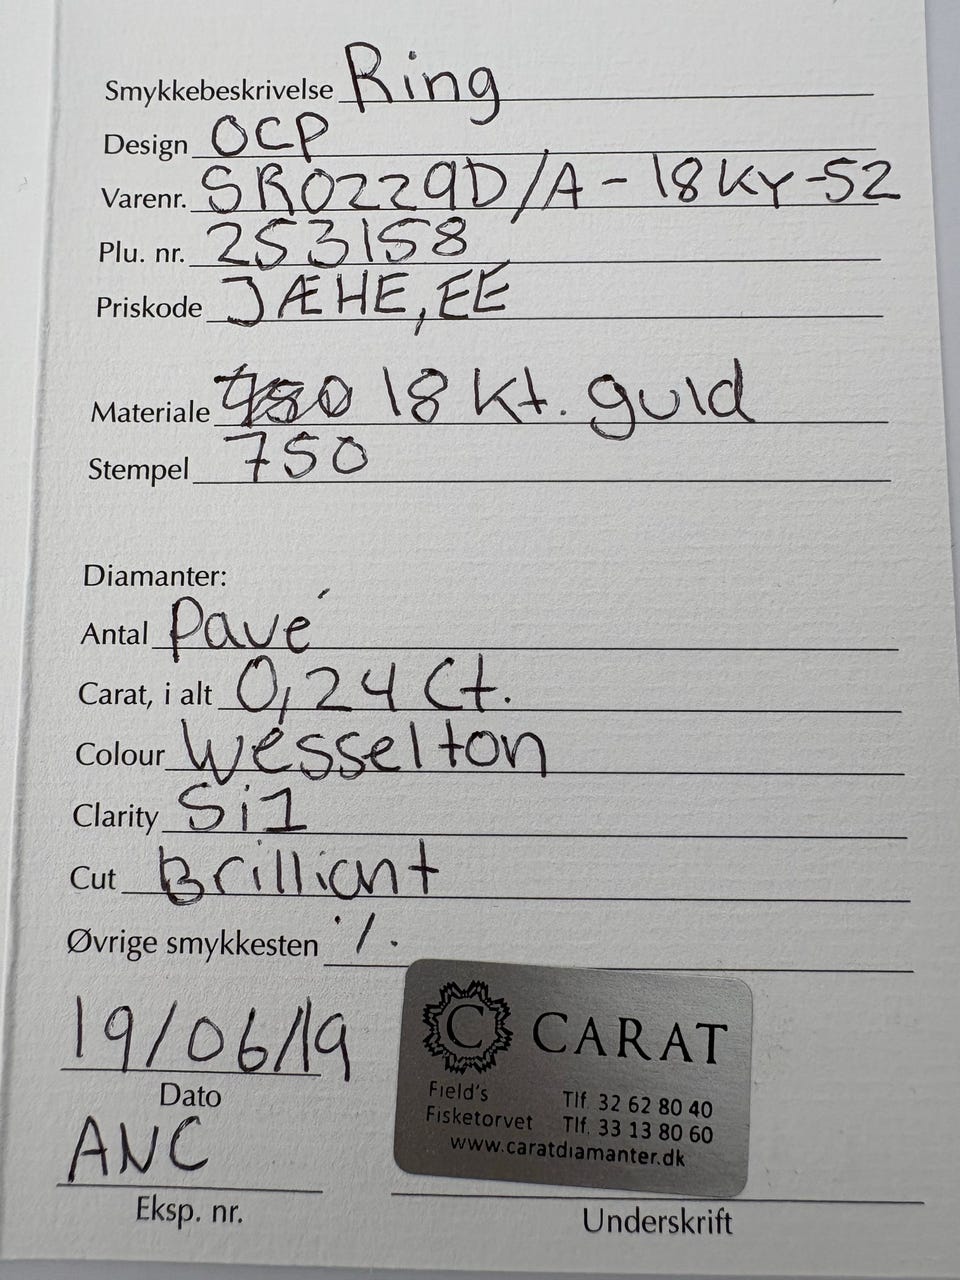 Smykkebeskrivelse Ring
Design OCP
Varenr. SR0229D/A-18KY-52
Plu. nr. 253158
Priskode JÆHE,EE
Materiale 18 Kt. guld
Stempel 750
Diamanter:
Antal Pavé
Carat, i alt 0,24 Ct.
Colour Wesselton
Clarity Si1
Cut Brilliant
Øvrige smykkesten ./.
19/06/19
Dato
ANC
Eksp. nr.
C CARAT
Field's Tlf. 32 62 80 40
Fisketorvet Tlf. 33 13 80 60
www.caratdiamanter.dk
Underskrift